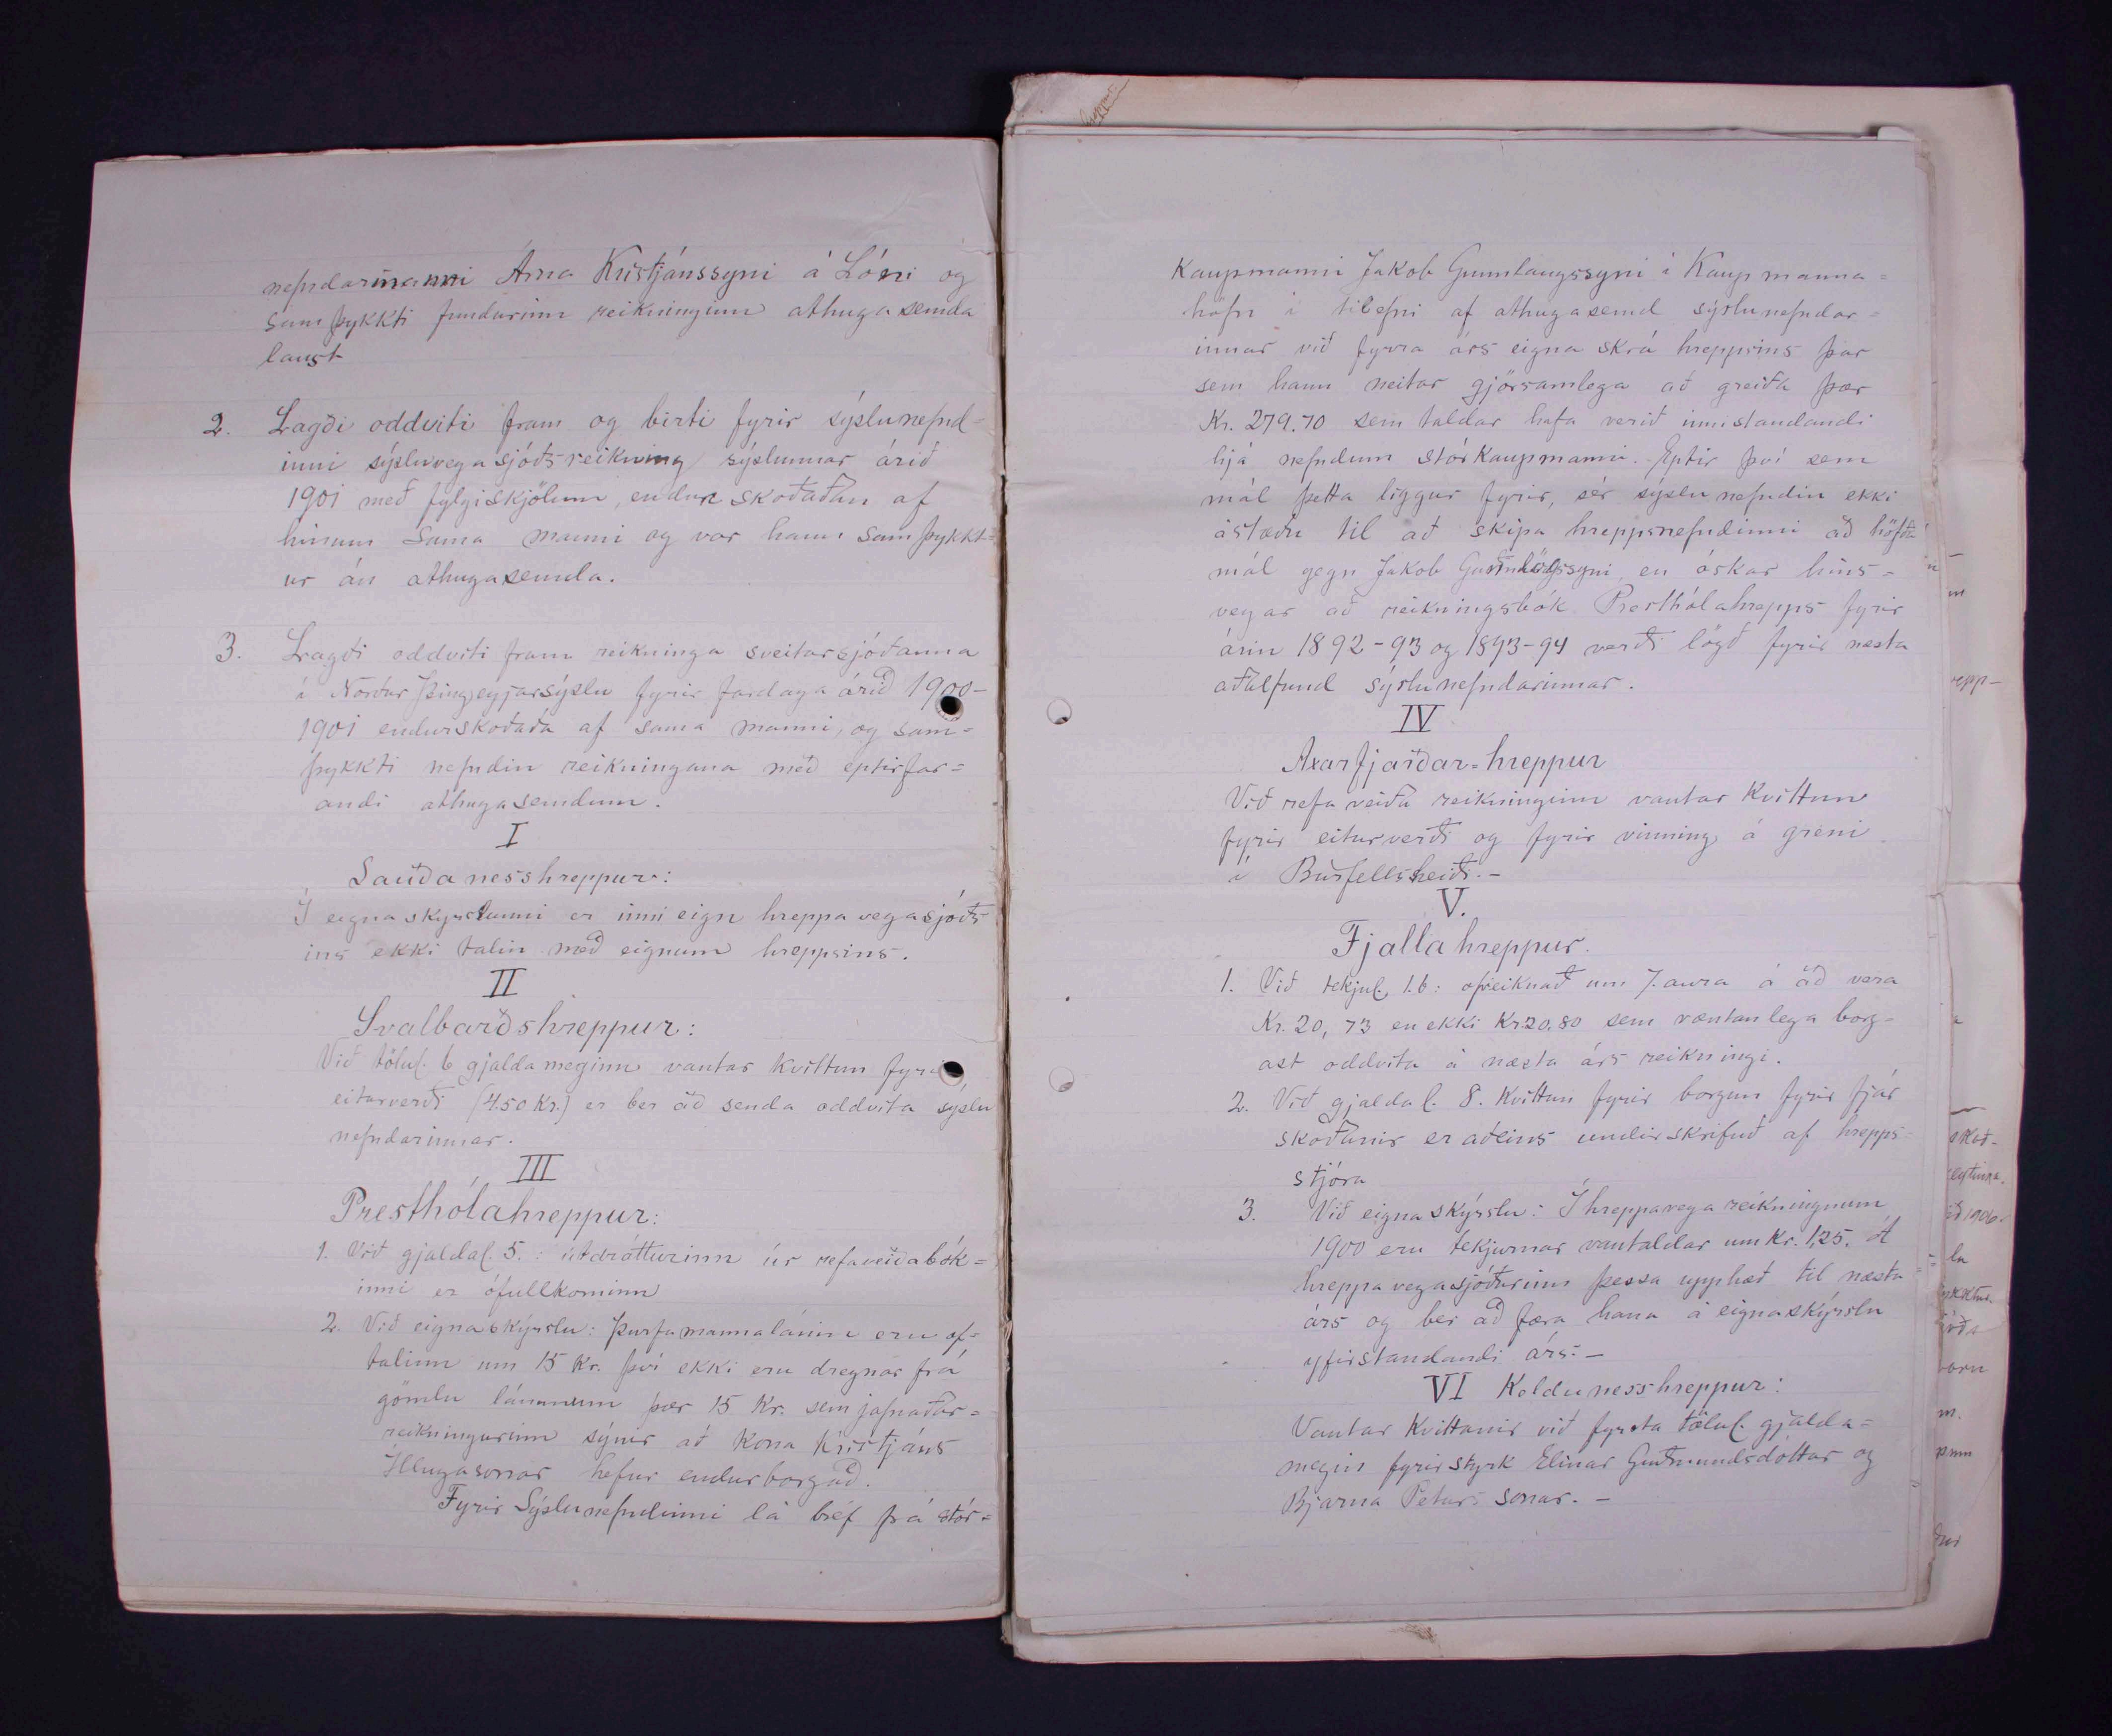 nefndarmanni Árna Kristjánssyni á Lóni og
samþykkti fundurinn reikninginn athugasemda
laust
2. Lagði oddviti fram og birti fyrir sýslunefnd-
inni sýsluvegasjóðsreikning sýslunnar árið
1901 með fylgiskjölum, endurskoðaðan af
hinum sama manni og var hann samþykkt-
ur án athugasemda.
3. Lagði oddviti fram reikninga sveitarsjóðanna
í Norður Þingeyjarsýslu fyrir fardaga árið 1900-
1901 endurskoðaða af sama manni, og sam=
þykkti nefndin reikningana með eptirfar=
andi athugasemdum.
I
Sauðanesshreppur:
Í eignaskyrslunni er inni eign hreppavegasjóðs-
ins ekki talin með eignum hreppsins.
II
Svalbarðshreppur:
Við tölul. 6 gjaldameginn vantar kvittun fyrir
eiturverði (4.50 Kr.) er ber að senda oddvita sýslu
nefndarinnar.
III
Presthólahreppur:
1. Við gjaldal. 5.: útdrátturinn úr refaveiðabók=
inni er ófullkominn
2. Við eignaskýrslu: Þurfamannalánin eru of=
talinn um 15 Kr. því ekki eru dregnar frá
gömlu lánunum þær 15 Kr. sem jafnaðar=
reikningurinn sýnir að kona Kristjáns
Illugasonar hefur endurborgað.
Fyrir Sýslunefndinni lá bréf frá stór=
hreppur
Kaupmanni Jakob Gunnlaugssyni í Kaupmanna=
höfn í tilefni af athugasemd sýslunefndar=
innar við fyrra árs eigna skrá hreppsins þar
sem hann neitar gjörsamlega að greiða þær
Kr. 279.70 sem taldar hafa verið innistandandi
hjá nefndum stórkaupmanni. Eptir því sem
mál þetta liggur fyrir, sér sýslunefndin ekki
ástæðu til að skipa hreppsnefndinni að höfða
mál gegn Jakob Gunnlögssyni, en óskar hins=
vegar að reikningsbók Presthólahrepps fyrir
árin 1892-93 og 1893-94 verði lögð fyrir næsta
aðalfund sýslunefndarinnar.
IV
Axarfjarðar=hreppur
Við refaveiða reikninginn vantar kvittun
fyrir eiturverði og fyrir vinning á greni
í Búrfellsheiði.-
V.
Fjallahreppur.
1. Við tekjul. 1.b: ofreiknað um 7. aura á að vera
Kr. 20,73 en ekki Kr. 20.80 sem væntanlega borg-
ast oddvita á næsta árs reikningi.
2. Við gjaldal. 8. Kvittun fyrir borgun fyrir fjár
skoðanir er aðeins undirskrifuð af hrepps=
stjóra
3. Við eignaskýrslu: Í hreppavega reikningnum
1900 eru tekjurnar vantaldar um Kr. 1,25. Á
hreppavegasjóðurinn þessa upphæð til næsta
árs og ber að færa hana á eignaskýrslu
yfirstandandi árs.-
VI Keldunesshreppur:
Vantar Kvittanir við fyrsta tölul. gjalda=
megin fyrir styrk Elínar Guðmundsdóttar og
Bjarna Peturssonar.-